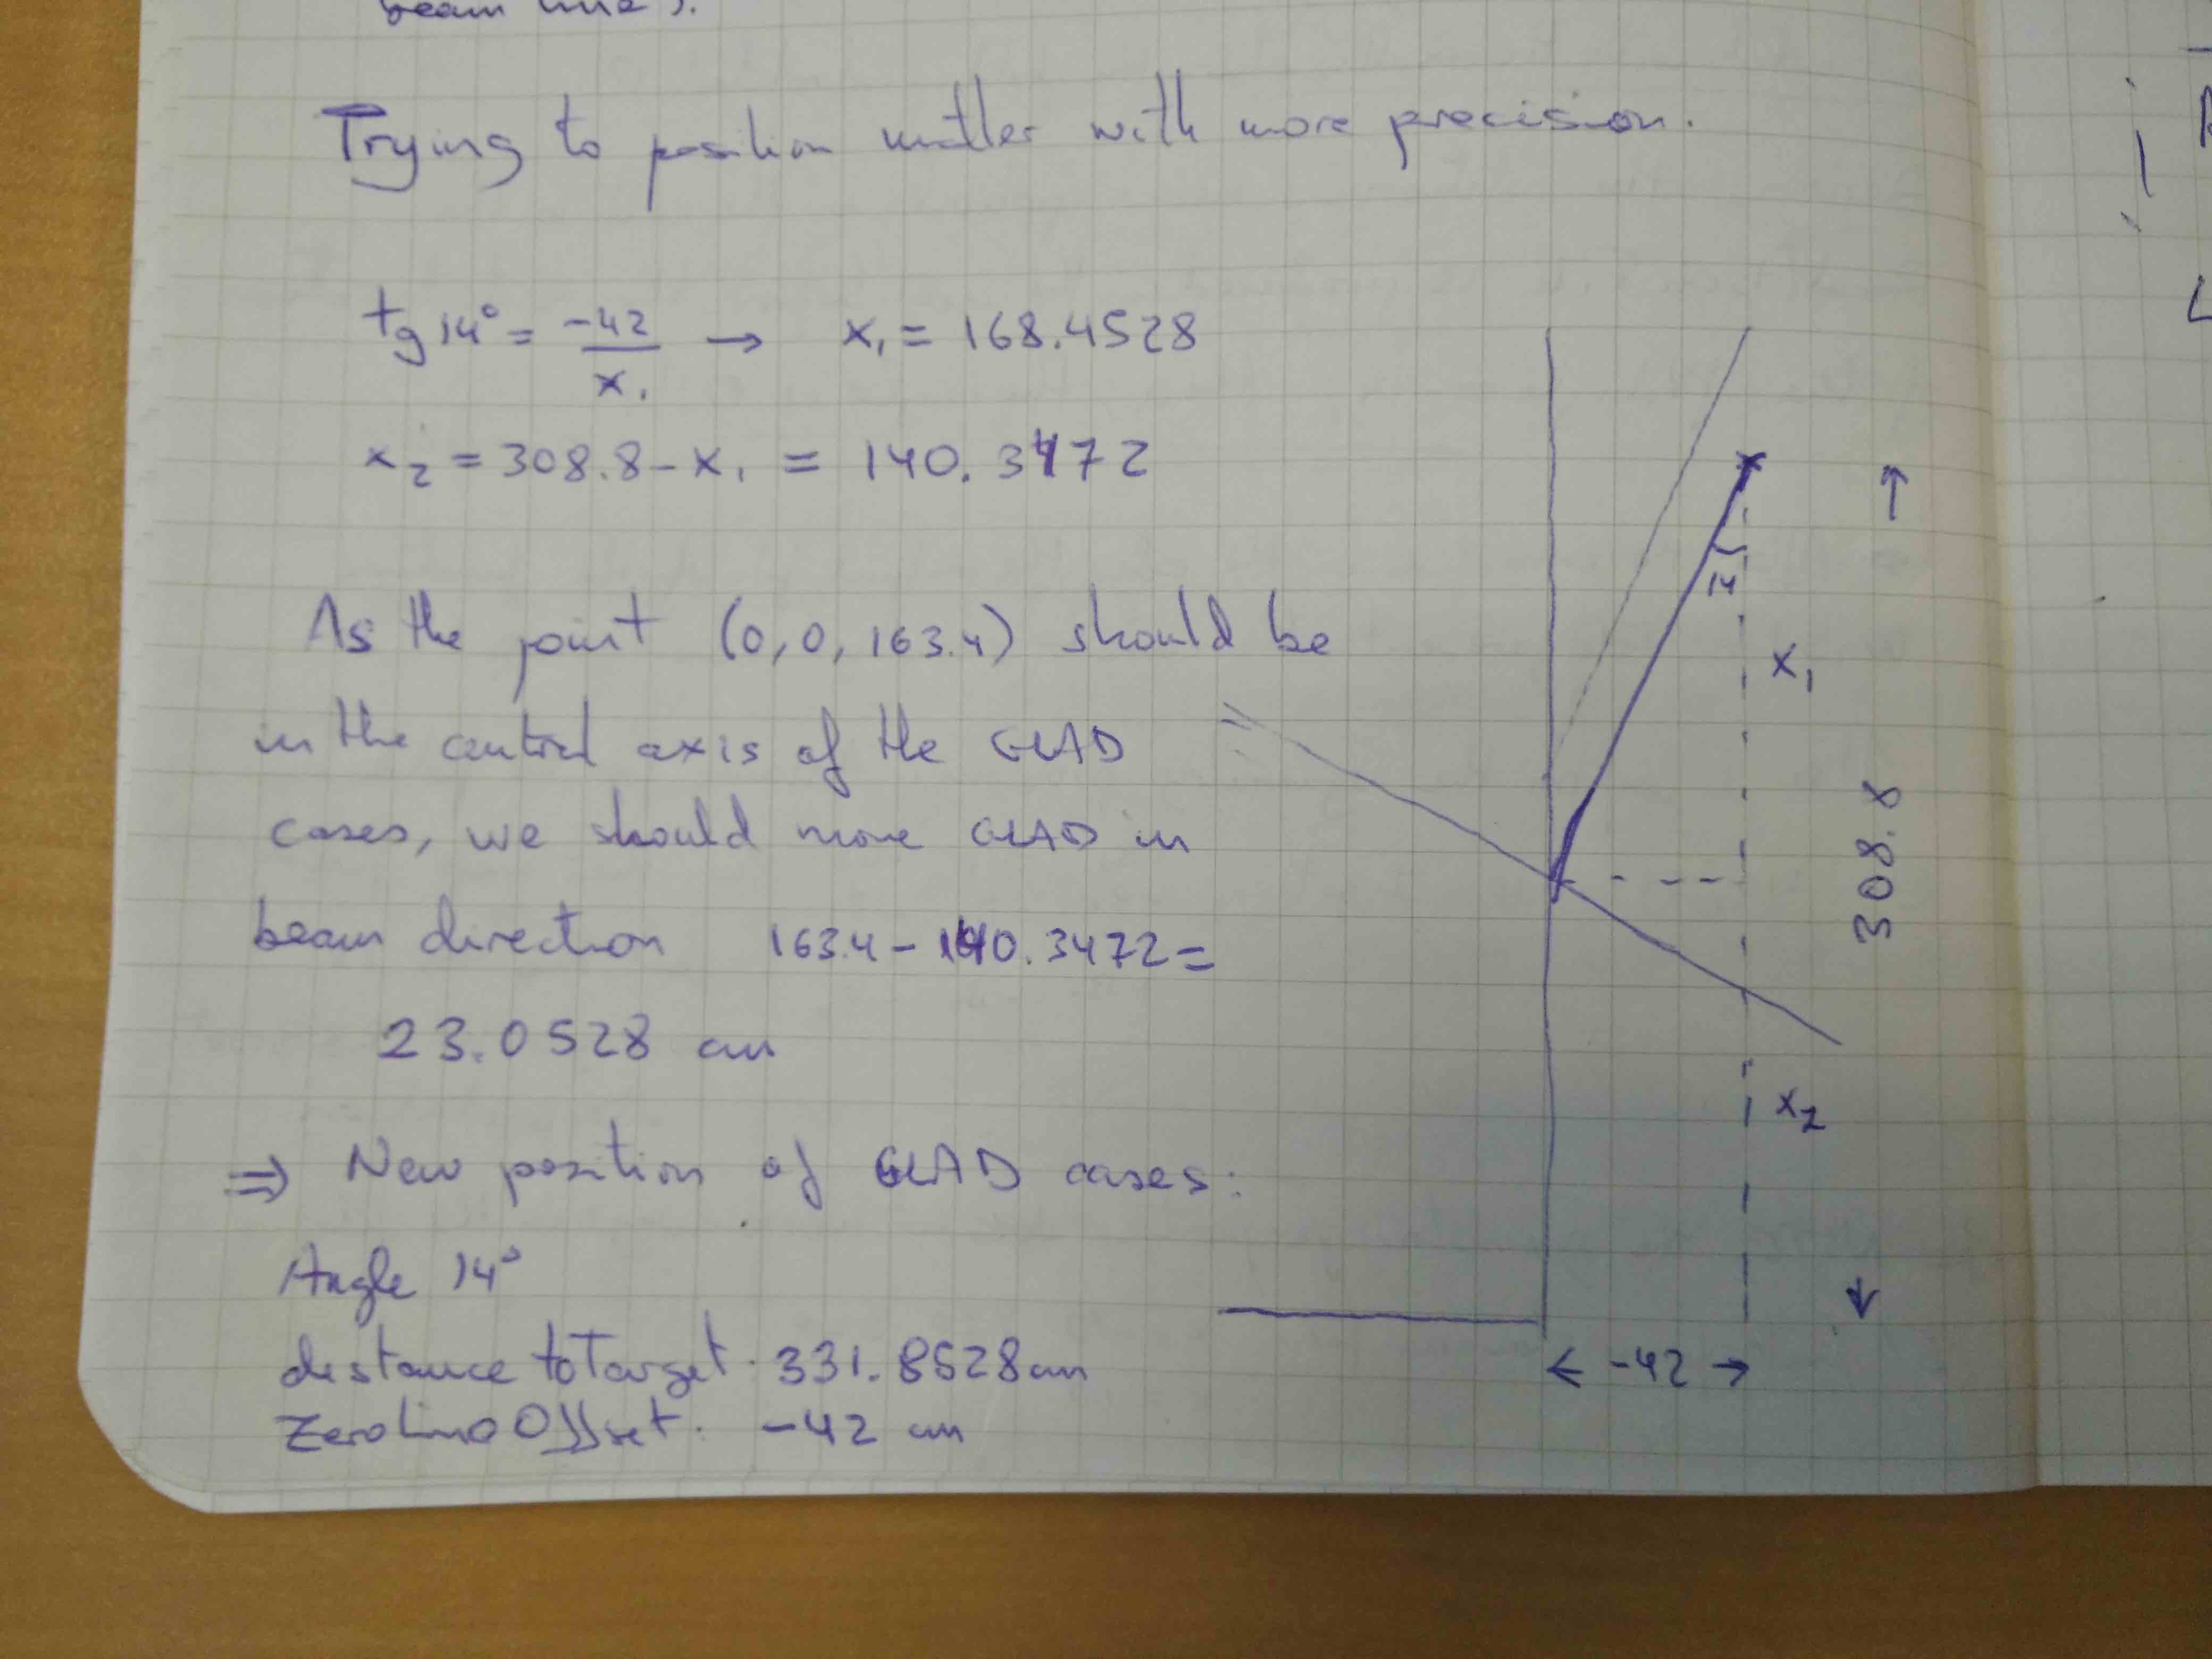 beam line).
Trying to position matter with more precision.
tg 14° = -42 / x₁ → x₁ = 168.4528
x₂ = 308.8 - x₁ = 140.3472
As the point (0,0,163.4) should be
in the central axis of the GLAD
cases, we should move GLAD in
beam direction 163.4 - 140.3472 =
23.0528 cm
⇒ New position of GLAD cases:
Angle 14°
distance to Target: 331.8528 cm
ZeroLineOffset: -42 cm
14
x₁
308.8
x₂
← -42 →